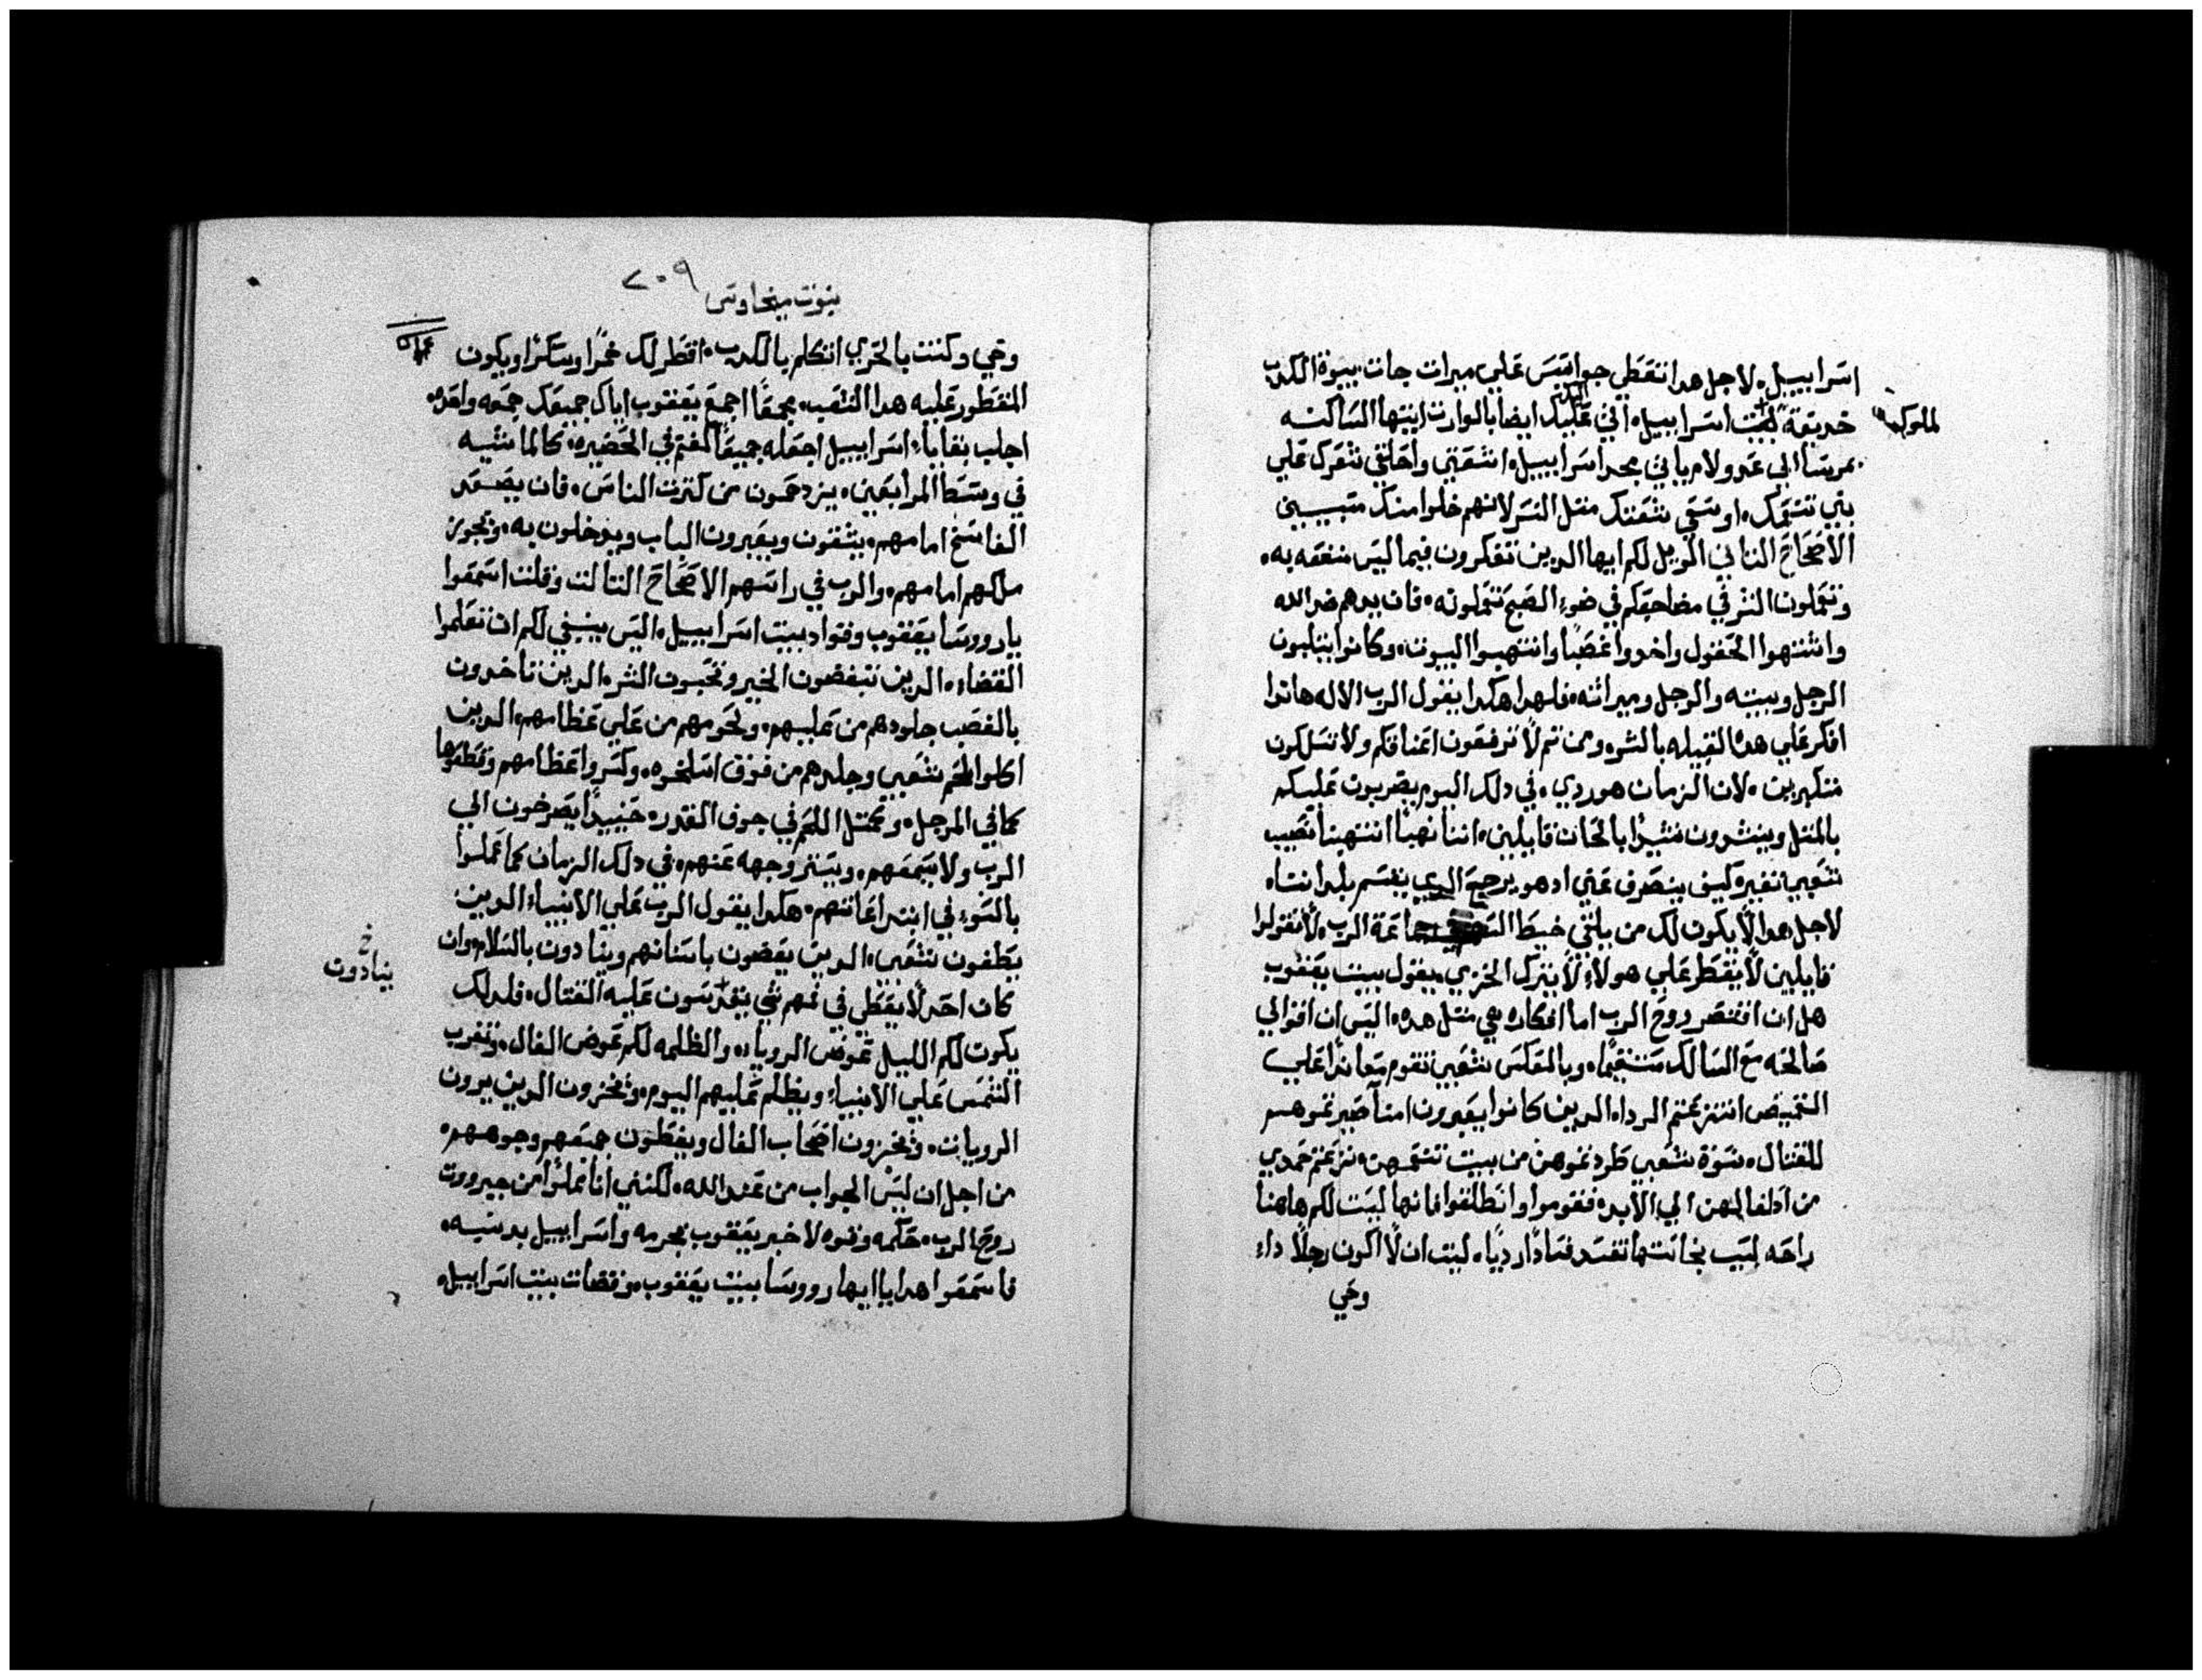 اسراييل. لاجل هدا تعطي جواسس علي ميرات جات. بيوة الكدب
خديعة لبيت اسراييل. اني عليك ايضا بالوارت ايتها الساكنه
للملوك
بمرسا الي عدولام ياتي مجد اسراييل. انتفتي واحلقي شعرك علي
بني تنعمك. اوسعي نتفتك متل النسر لانهم خلوا منك متسبيين
الاصحاح التاني الويل لكم ايها الدين تتفكرون فيما ليس منفعه به.
وتعملون الشر في مضاجعكم في ضوء الصبح تعملونه. فان يدهم ضد الله
واشتهوا الحقول واخدوا غصبا وانتهبوا البيوت. وكانوا يتلبون
الرجل وبيته والرجل وميراته. فلهدا هكدا يقول الرب الاله هاندا
افكر علي هده القبيله بالشر. ومن تم لا ترفعون اعناقكم ولا تسلكون
متكبرين. لان الزمان هو ردي. في دلك اليوم يضربون عليكم
بالمتل وينشرون نشيدا بالحان قايلين. اننا نهبا انتهبنا نصيب
شعبي تغير. كيف ينصرف عني اد هو يرجع الدي يقسم بلدانتاه
لاجل هدا لا يكون لك من يلقي خيط جماعة الرب. لا تقولوا
قايلين لا يقطر علي هولاء لا يترك الخزي. يقول بيت يعقوب
هل ان اقتصر روح الرب اما افكاره هي متل هده. اليس ان اقوالي
صالحه مع السالك مستقيما. وبالعكس شعبي تقوم معاندا علي
القميص انتزعتم الردا. الدين كانوا يعبرون امنا صيرتموهم
للقتال. نسوة شعبي طردتموهن من بيت تنعمهن. نزعتم حمدي
من اطفالهن الي الابد. فقوموا وانطلقوا فانها ليست لكم هاهنا
راحه لسبب نجاستها تفسد فسادا رديا. ليت ان لا اكون رجلا داء
وحي
٢٠٩
نبوت ميخاوس
وحي وكنت بالحري اتكلم بالكدب. اقطر لك خمرا وسكرا ويكون
المقطور عليه هدا الشعب. مجمعا اجمع يعقوب اياك جميعك جمعه واحده.
اجلب بقايا اسراييل اجعله جميعا كغنم في الحضيره. كالماشيه
في وسط المرابعين. يزدحمون من كترت الناس. فان يصعد
الفاسخ امامهم. يشقون ويعبرون الباب ويدخلون به. ويجوز
ملكهم امامهم. والرب في راسهم الاصحاح التالت وقلت اسمعوا
يا رووسا يعقوب وقواد بيت اسراييل. اليس ينبغي لكم ان تعلموا
القضاء. الدين تبغضون الخير وتحبون الشر. الدين تاخدون
بالغصب جلودهم من عليهم. ولحومهم من علي عظامهم. الدين
اكلوا لحم شعبي وجلدهم من فوق اسلخوه. وكسروا عظامهم وقطعوها
كما في المرجل. وكمتل اللحم في جوف القدر. حينيدا يصرخون الي
الرب ولا يسمعهم. ويستر وجهه عنهم. في دلك الزمان كما عملوا
بالسوء في ابتداعاتهم. هكدا يقول الرب علي الانبياء الدين
يطغون شعبي. الدين يعضون باسنانهم وينادون بالسلام. وان
خ
ينادوت
كان احد لا يعطي في فمهم شي يقدسون عليه القتال. فلدلك
يكون لكم الليل عوض الرويا. والظلمه لكم عوض الفال. وتغرب
الشمس علي الانبياء ويظلم عليهم اليوم. ويخزون الدين يرون
الرويات. ويخزون اصحاب الفال ويغطون جميعهم وجوههم.
من اجل ان ليس الجواب من عند الله. لكنني انا تملوا من جبروت
روح الرب. حكمه وقوه لاخبر يعقوب بجرمه واسراييل بدنبه.
فاسمعوا هدا يا ايها رووسا بيت يعقوب. وقضات بيت اسراييل.